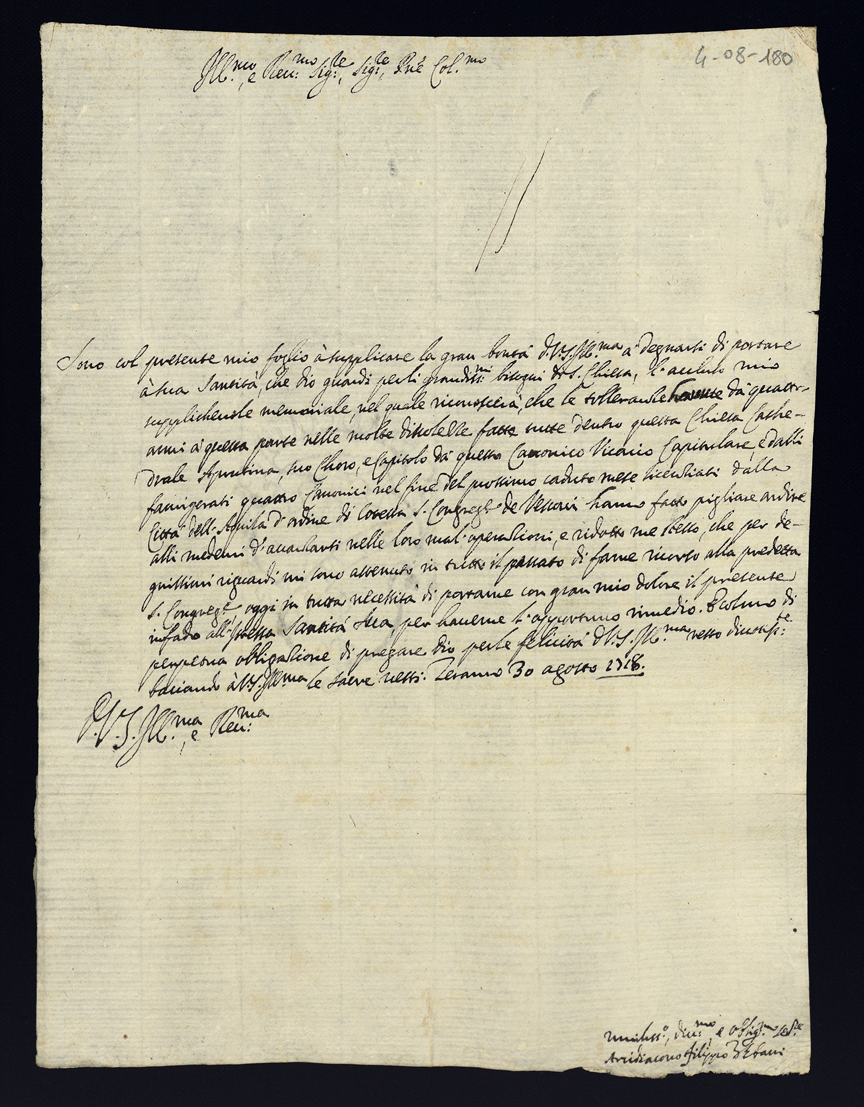 4-08-180
Ill.mo, e Reu.mo Sig.re, Sig.re, Prē Col.mo
Sono col presente mio foglio à supplicare la gran bontà d.V.S.Ill.ma à degnarsi di portare
à sua Santità, che Dio guardi per li grandiss.mi bisogni di S. Chiesa, l'accluso mio
supplicheuole memoriale, nel quale riconoscerà, che le tolleranze da quattr-
anni à questa parte nelle molte dissolutezze fatte tutte dentro questa Chiesa Cathe-
drale Aprutina, suo Choro, e Capitolo dà questo Canonico Vicario Capitulare, e dalli
famigerati quattro Canonici nel fine del prossimo caduto mese licentiati dalla
Città dell'Aquila d'ordine di cotesta S. Congreg.e de Vescoui hanno fatto pigliare ardire
alli medemi d'auanzarsi nelle loro mal'operationi, e ridotto me stesso, che per de-
gnissimi riguardi mi sono astenuto in tutto il passato di farne ricorso alla predetta
S. Congreg.e oggi in tutta necessità di portarne con gran mio dolore il presente
infado all'stessa Santità Sua per hauerne l'opportuno rimedio. E colmo di
perpetua obligatione di pregare Dio per le felicità d.V.S.Ill.ma resto diuotiss.e
baciando à V.S.Ill.ma le sacre uesti. Teramo 30 agosto 1718.
D.V.S.Ill.ma, e Reu.ma
Umiliss.o, diu.mo, e oblig.mo se.re
Arcidiacono Filippo